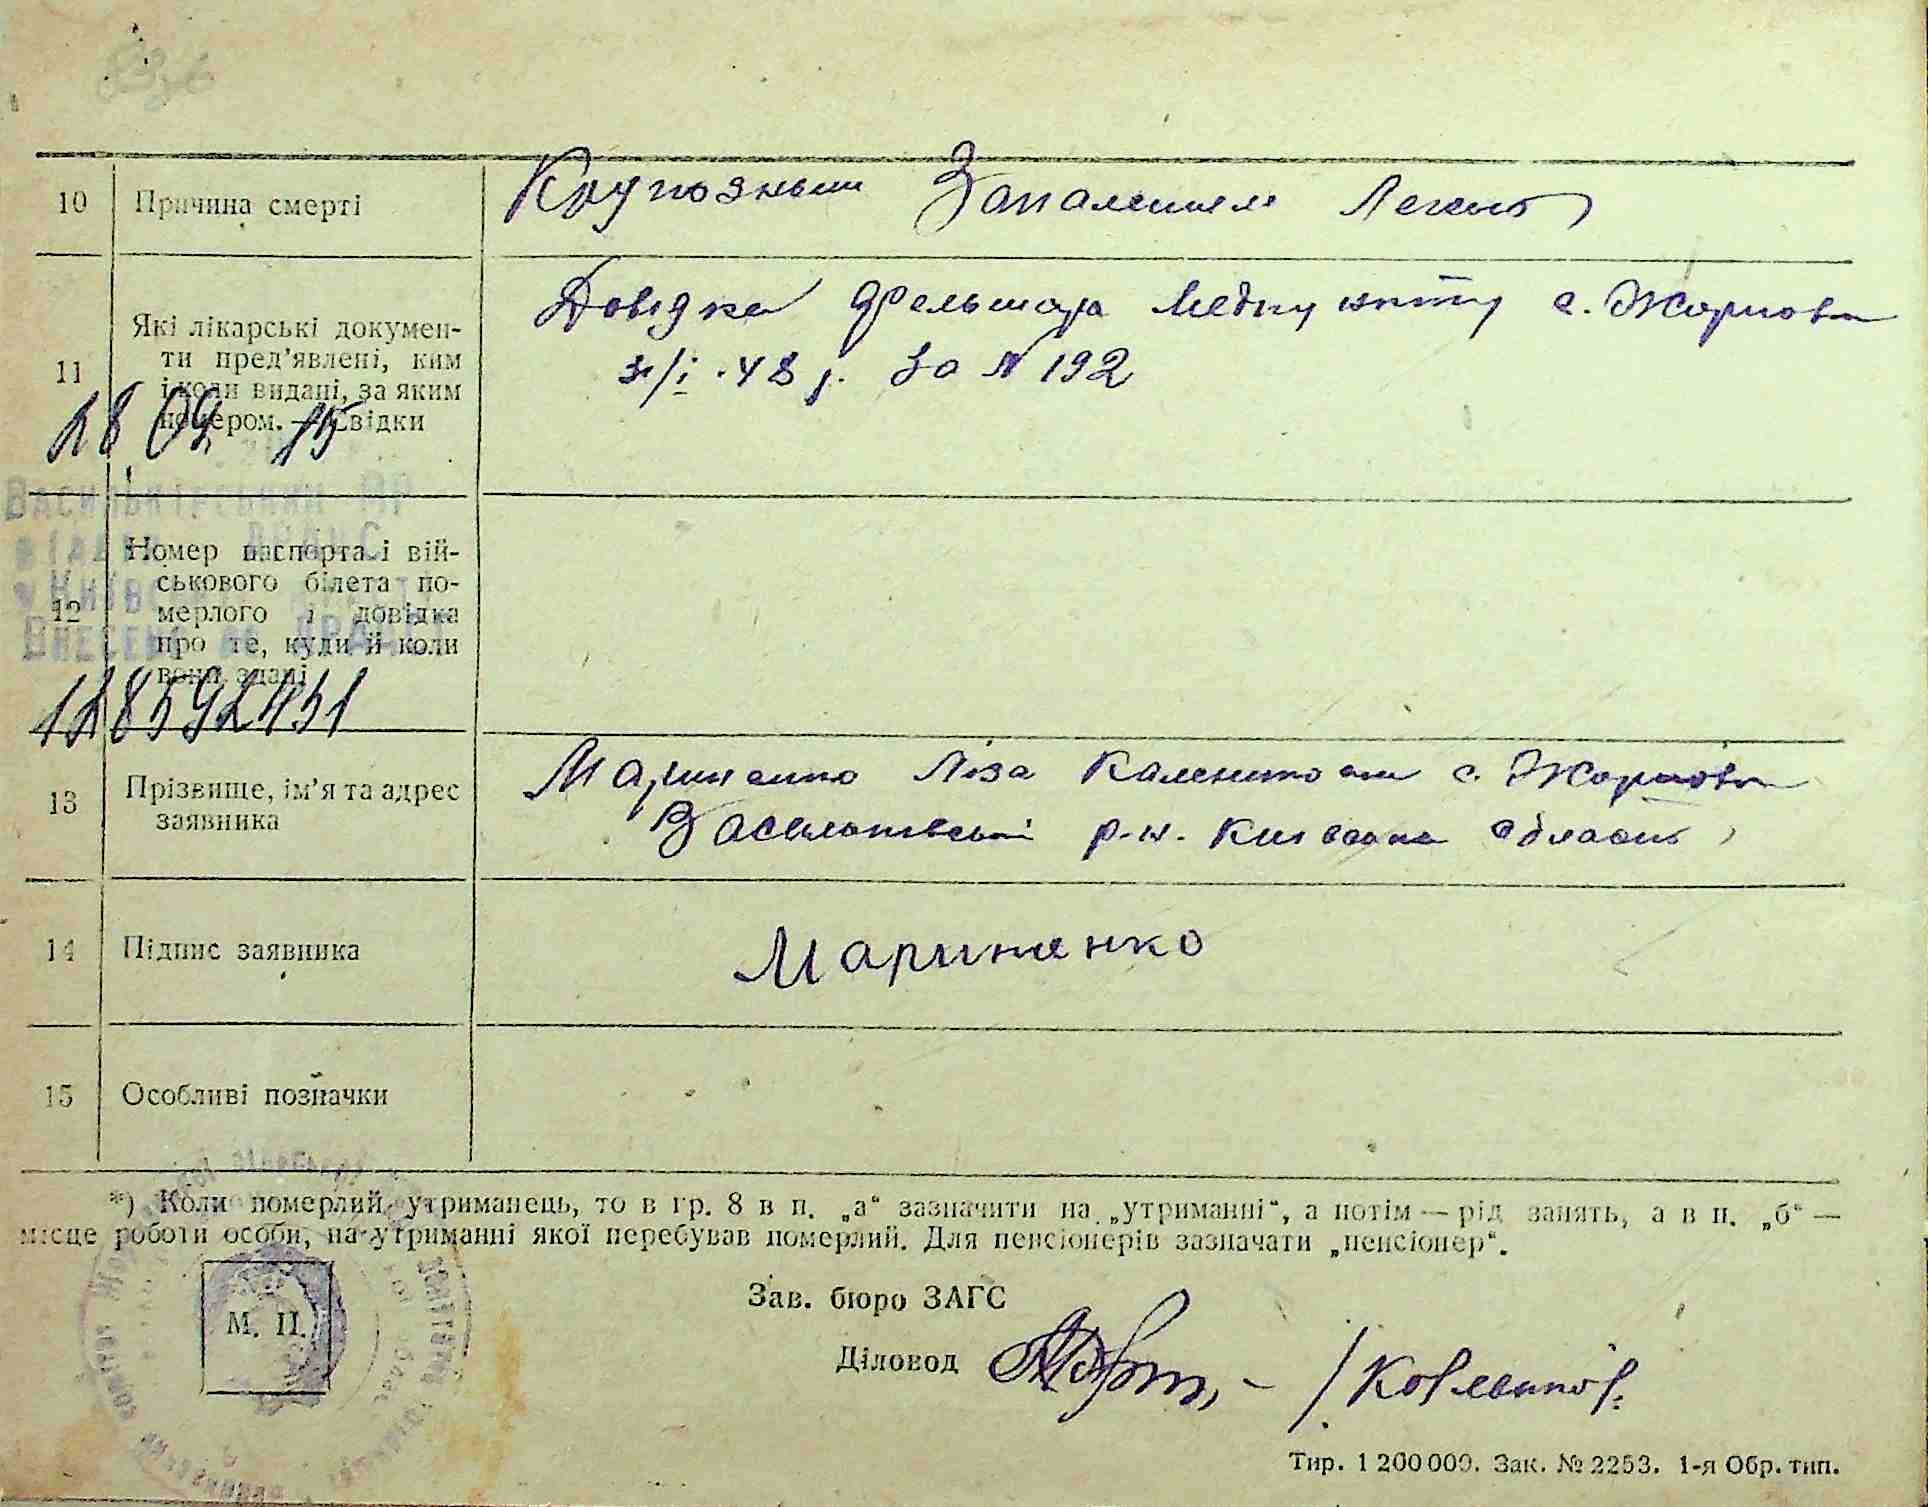 10 Причина смерті Крупозным Запаленням Легень
11 Які лікарські докумен-
ти пред'явлені, ким
і коли видані, за яким
номером. — Свідки
Довідка Фельшара Медпункту с. Жорновка
31/I.48 р. За № 192
28 09 15
Васильківський МР
Внесено
12 Номер паспорта і вій-
ськового білета по-
мерлого і довідка
про те, куди й коли
вони здані
13 Прізвище, ім'я та адрес
заявника
Мариненко Ліза с. Жорновка
Васильківський р-н. Київська область
14 Підпис заявника Мариненко
15 Особливі позначки
*) Коли померлий утриманець, то в гр. 8 в п. „а“ зазначити на „утриманні“, а потім — рід занять, а в п. „б“ —
місце роботи особи, на утриманні якої перебував померлий. Для пенсіонерів зазначати „пенсіонер“.
М. П.
Зав. бюро ЗАГС
Діловод
Тир. 1 200 000. Зак. № 2253. 1-я Обр. тип.